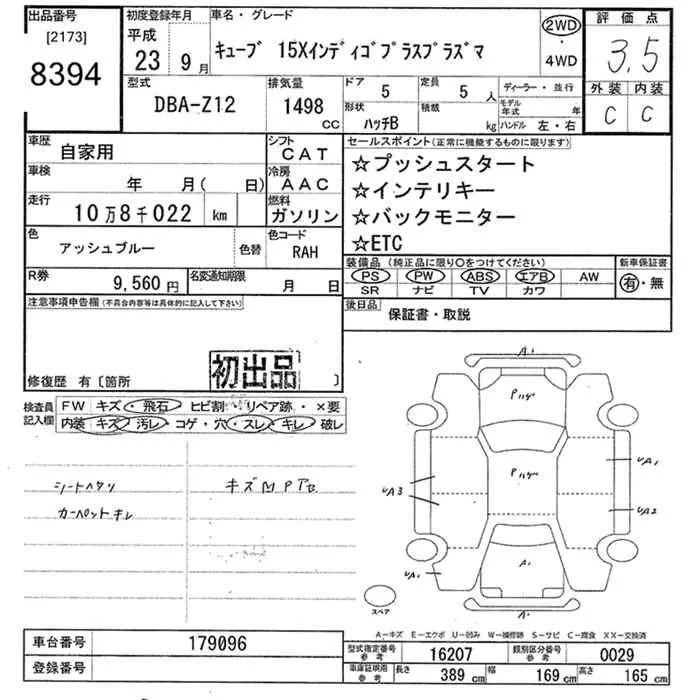 出品番号 初度登録年月 車名・グレード 評価点
[2173] 平成 キューブ 15Xインディゴプラスプラズマ 2WD・4WD 3.5
8394 23年9月
型式 排気量 ドア 定員 ディーラー・並行 外装 内装
DBA-Z12 1498cc 5 5人 モデル年式 年 C C
形状 積載
ハッチB kg ハンドル 左・右
車歴 自家用 シフト CAT セールスポイント(正常に機能するものに限ります)
車検 年 月( 日) 冷房 AAC ☆プッシュスタート
☆インテリキー
走行 10万8千022 km 燃料 ガソリン ☆バックモニター
☆ETC
色 アッシュブルー 色替 色コード RAH
装備品(純正品に限り○をつけてください) 新車保証書
R券 9,560円 名変通知期限 月 日 PS PW ABS エアB AW 有・無
SR ナビ TV カワ
注意事項申告欄(不具合内容等は具体的に記入して下さい) 後日品 保証書・取説
初出品
修復歴 有〔箇所 〕
検査員記入欄 FW キズ・飛石・ヒビ割・リペア跡・×要
内装 キズ・汚レ・コゲ・穴・スレ・キレ・破レ
A1
シートヘタリ キズ凹PTB
カーペットキレ
UA1
UA3
UA2
A1
スペア
A1
A-キズ E-エクボ U-凹み W-補修跡 S-サビ C-腐食 XX-交換済
車台番号 179096 型式指定番号 参考 16207 類別区分番号 参考 0029
登録番号 車庫証明用 参考 長さ 389cm 幅 169cm 高さ 165cm